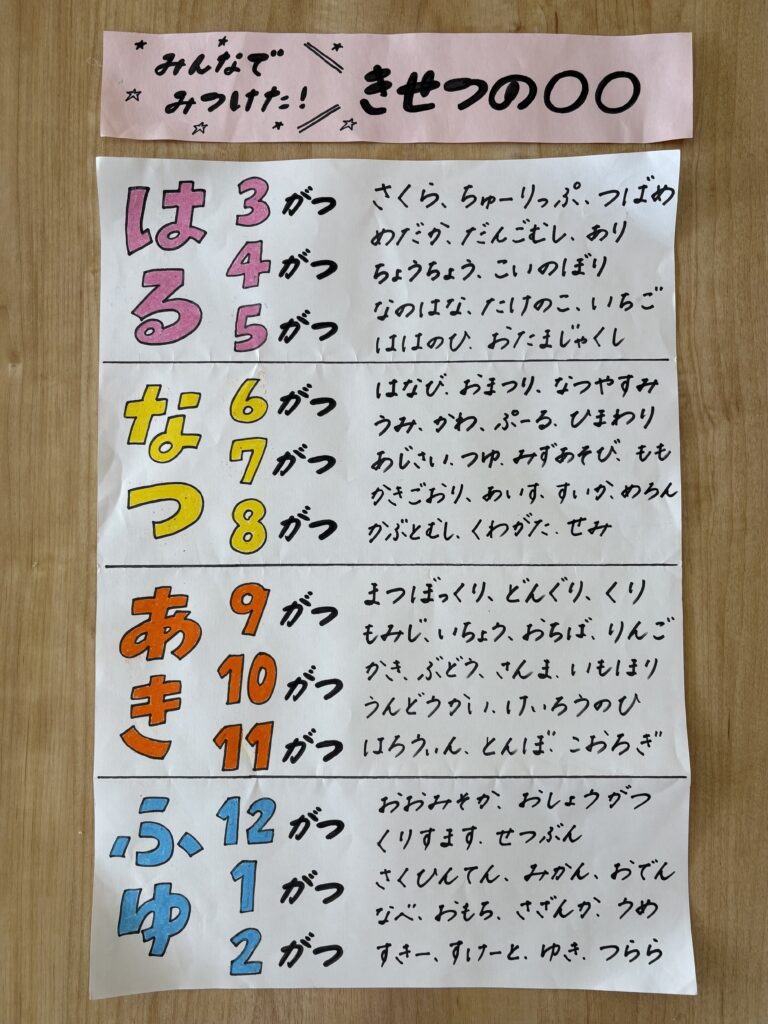 みんなで
みつけた!
きせつの〇〇
はる
3がつ
4がつ
5がつ
さくら、ちゅーりっぷ、つばめ
めだか、だんごむし、あり
ちょうちょう、こいのぼり
なのはな、たけのこ、いちご
ははのひ、おたまじゃくし
なつ
6がつ
7がつ
8がつ
はなび、おまつり、なつやすみ
うみ、かわ、ぷーる、ひまわり
あじさい、つゆ、みずあそび、もも
かきごおり、あいす、すいか、めろん
かぶとむし、くわがた、せみ
あき
9がつ
10がつ
11がつ
まつぼっくり、どんぐり、くり
もみじ、いちょう、おちば、りんご
かき、ぶどう、さんま、いもほり
うんどうかい、けいろうのひ
はろうぃん、とんぼ、こおろぎ
ふゆ
12がつ
1がつ
2がつ
おおみそか、おしょうがつ
くりすます、せつぶん
さくひんてん、みかん、おでん
なべ、おもち、さざんか、うめ
すきー、すけーと、ゆき、つらら